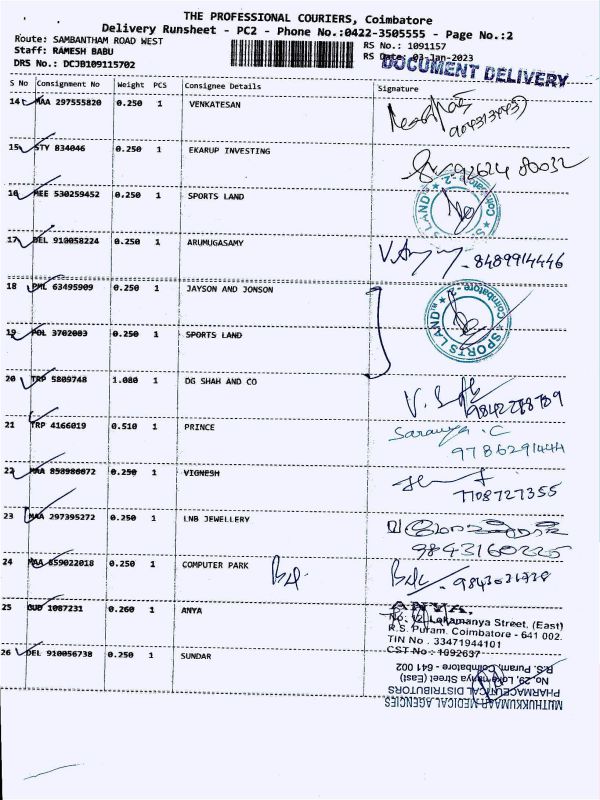 THE PROFESSIONAL COURIERS, Coimbatore
Delivery Runsheet - PC2 - Phone No.:0422-3505555 - Page No.:2
Route: SAMBANTHAM ROAD WEST
RS No.: 1091157
Staff: RAMESH BABU
RS Date: 03-Jan-2023
DRS No.: DCJB109115702
DOCUMENT DELIVERY
S No Consignment No Weight PCS Consignee Details Signature
14 MAA 297555820 0.250 1 VENKATESAN
15 STY 834046 0.250 1 EKARUP INVESTING
92624 80032
16 MEE 530259452 0.250 1 SPORTS LAND
SPORTS LAND Coimbatore - 2
17 DEL 910058224 0.250 1 ARUMUGASAMY
8489914446
18 PML 63495909 0.250 1 JAYSON AND JONSON
19 POL 3702003 0.250 1 SPORTS LAND
SPORTS LAND Coimbatore - 2
20 TRP 5809748 1.080 1 DG SHAH AND CO
21 TRP 4166019 0.510 1 PRINCE
Saranya .C
9786291444
22 MAA 858980072 0.250 1 VIGNESH
7708727355
23 MAA 297395272 0.250 1 LNB JEWELLERY
9843160225
24 MAA 859022018 0.250 1 COMPUTER PARK
25 GUD 1087231 0.260 1 ANYA
ANYA.
No. 12, Lokamanya Street, (East)
R.S. Puram, Coimbatore - 641 002.
TIN No . 33471944101
CST No : 1092637
26 DEL 910056738 0.250 1 SUNDAR
MUTHUKKUMAAR MEDICAL AGENCIES
PHARMACEUTICAL DISTRIBUTORS
No. 29, Lokamanya Street (East)
R.S. Puram, Coimbatore - 641 002